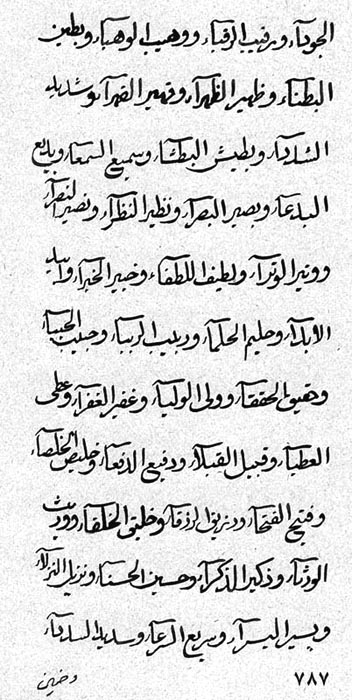 الجوداء ورقيب الرقباء ووهيب الوهباء وبطين
البطناء وظهير الظهراء وقهير القهراء وشديد
الشدداء وبطيش البطشاء وسميع السمعاء وبديع
البدعاء وبصير البصراء ونظير النظراء ونصير النصراء
ووتير الوتراء ولطيف اللطفاء وخبير الخبراء وابيد
الابداء وحليم الحلماء وربيب الربباء وحبيب الحبباء
وحقيق الحققاء وولي الولياء وغفير الغفراء وعطي
العطياء وقبيل القبلاء ودفيع الدفعاء وخليص الخلصاء
وفتيح الفتحاء ورزيق الرزقاء وخليق الخلقاء ووريث
الورثاء وذكير الذكراء وحسين الحسناء ونزيل النزلاء
ويسير اليسراء وسريع السرعاء وسديد السدداء
٧٨٧